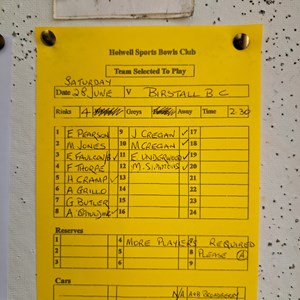 Holwell Sports Bowls Club
Team Selected To Play
SATURDAY
Date 28 JUNE V BIRSTALL B C
Rinks 4 Greys Away Time 2.30
1 E PEARSON 9 J CREGAN ✓ 17
2 M JONES 10 M CREGAN ✓ 18
3 11 E UNDERWOOD ✓ 19
4 F THORPE 12 20
5 H CRAMP ✓ 13 21
6 A GRILLO 14 22
7 G BUTLER 15 23
8 A 16 24
Reserves
1 4 MORE PLAYERS REQUIRED
2 5 8 PLEASE
3 6 9
Cars